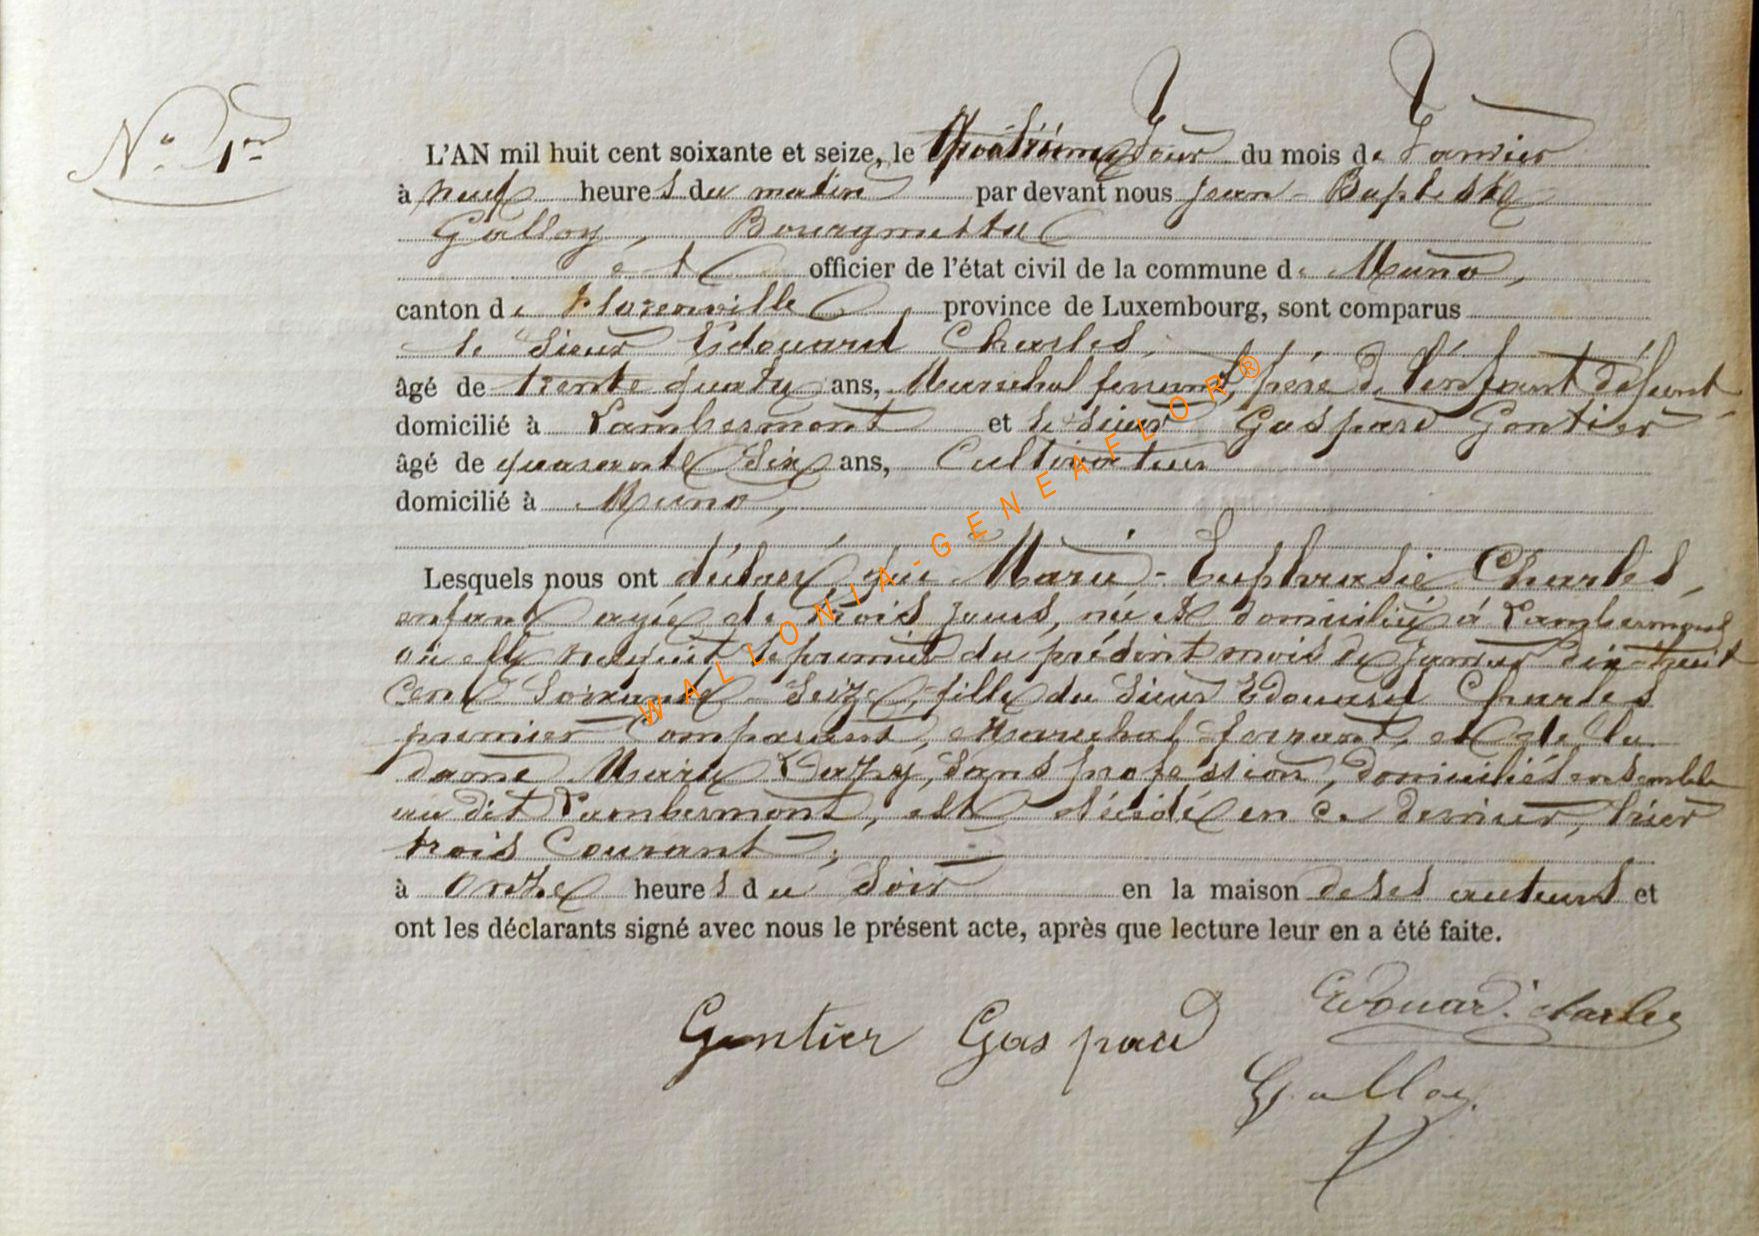 N° 1er
L'AN mil huit cent soixante et seize, le Quatrième Jour du mois de Janvier
à neuf heures du matin par devant nous Jean-Baptiste
Galloy, Bourgmestre
et officier de l'état civil de la commune de Muno,
canton de Florenville province de Luxembourg, sont comparus
le Sieur Edouard Charles,
âgé de trente quatre ans, Maréchal ferrant, père de l'enfant défunt
domicilié à Lambermont et le Sieur Gaspard Gontier
âgé de quarante six ans, Cultivateur
domicilié à Muno,
Lesquels nous ont déclaré que Marie-Euphrasie Charles,
enfant agée de trois jours, née et domiciliée à Lambermont
où elle naquit le premier du présent mois de Janvier dix-huit
cent Soixante-Seize, fille du Sieur Edouard Charles
premier Comparant, Maréchal-ferrant, et de la
dame Marie, sans profession, domiciliés ensemble
au dit Lambermont, est décédée en ce dernier, hier
trois Courant,
à Onze heures du Soir en la maison de ses auteurs et
ont les déclarants signé avec nous le présent acte, après que lecture leur en a été faite.
Edouard charles
Gontier Gaspard
Galloy
WALLONIA-GENEAFLOR®